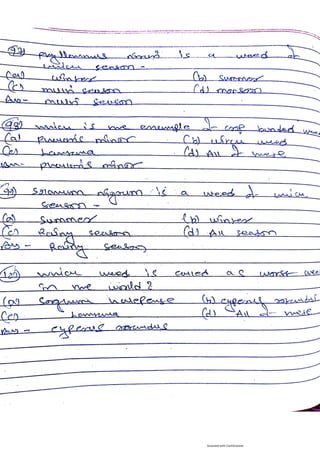 97) phyllanthus niruri is a weed of
which season -
(a) winter (b) summer
(c) multi season (d) monsoon
Ans - multi season
98) which is the example of crop bunded weed
(a) phalaris minor (b) weed
(c) Lantana (d) All of these
Ans - phalaris minor
99) Solanum nigrum is a weed of which
season -
(a) Summer (b) winter
(c) Rainy season (d) All season
Ans - Rainy season
100) which weed is called as worst
in the world?
(a) Sorghum halepense (b) cyperus rotundus
(c) Lantana (d) All of these
Ans - cyperus rotundus
Scanned with CamScanner